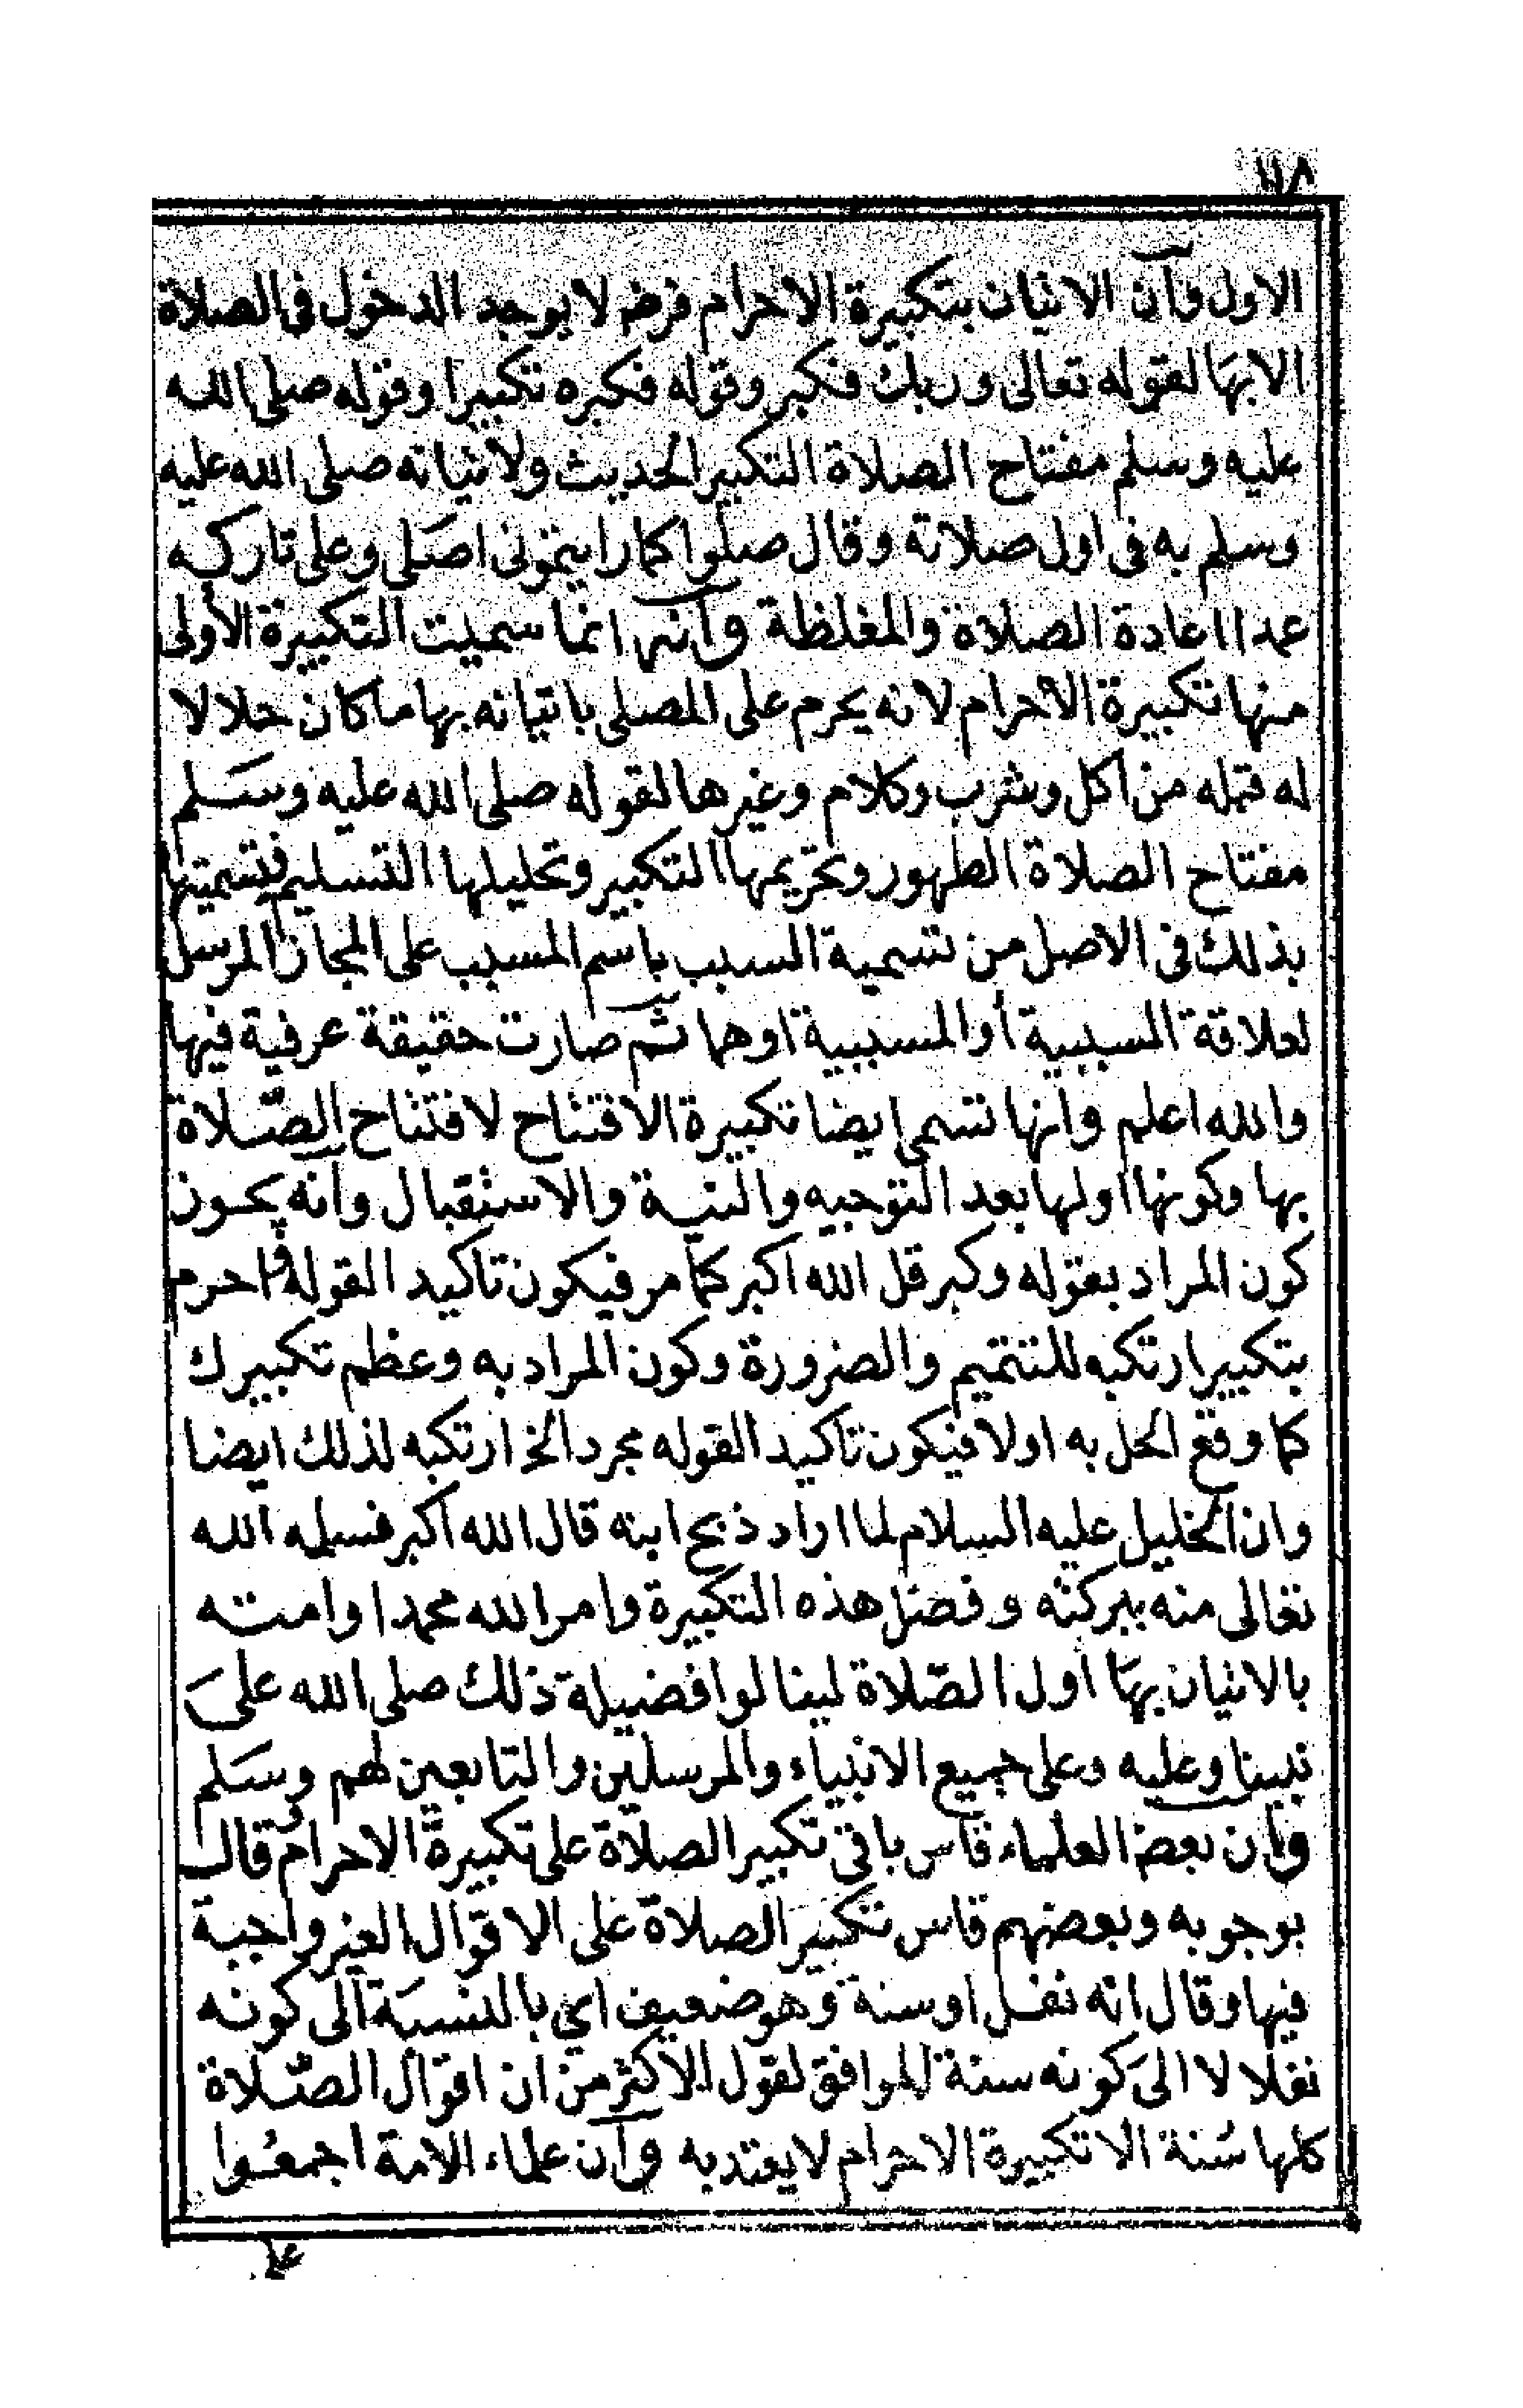 ١١٨
الاول وأن الاتيان بتكبيرة الاحرام فرض لا يوجد الدخول في الصلاة
الا بها لقوله تعالى وربك فكبر وقوله فكبره تكبيرا وقوله صلى الله
عليه وسلم مفتاح الصلاة التكبير الحديث ولاتيانه صلى الله عليه
وسلم به في اول صلاته وقال صلوا كما رايتموني اصلي وعلى تاركه
عمدا اعادة الصلاة والمغلظة وأنه انما سميت التكبيرة الأولى
منها تكبيرة الاحرام لانه يحرم على المصلى باتيانه بها ما كان حلالا
له قبله من اكل وشرب وكلام وغيرها لقوله صلى الله عليه وسلم
مفتاح الصلاة الطهور وتحريمها التكبير وتحليلها التسليم فتسميتها
بذلك في الاصل من تسمية السبب باسم المسبب على المجاز المرسل
لعلاقة السببية أو المسببية اوهما ثم صارت حقيقة عرفية فيها
والله اعلم وانها تسمى ايضا تكبيرة الافتتاح لافتتاح الصّلاة
بها وكونها اولها بعد التوجيه والنية والاستقبال وأنه يجوز
كون المراد بقوله وكبر قل الله اكبر كما مر فيكون تاكيدا لقوله فاحرم
بتكبير ارتكبه للتتميم والضرورة وكون المراد به وعظم تكبيرك
كما وقع الحل به اولا فيكون تاكيدا لقوله مجردا الخ ارتكبه لذلك ايضا
وان الخليل عليه السلام لما اراد ذبح ابنه قال الله اكبر فسلمه الله
تعالى منه ببركته وفضل هذه التكبيرة وامر الله محمدا وامته
بالاتيان بها اول الصّلاة لينالوا فضيلة ذلك صلى الله على
نبينا وعليه وعلى جميع الانبياء والمرسلين والتابعين لهم وسلم
وأن بعض العلماء قاس باقي تكبير الصلاة على تكبيرة الاحرام وقال
بوجوبه وبعضهم قاس تكبير الصلاة على الاقوال الغير واجبة
فيها وقال انه نفل او سنة وهو ضعيف اي بالنسبة الى كونه
نفلا لا الى كونه سنة للموافق لقول الأكثر من ان اقوال الصّلاة
كلها سُنة الا تكبيرة الاحرام لا يعتد به وأن علماء الامة اجمعُوا
على